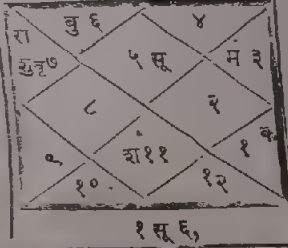 बु ६ ४
रा
शुबृ७ ५ सू मं ३
८ २
९ शं ११ १
१० १२
१ सू ६,